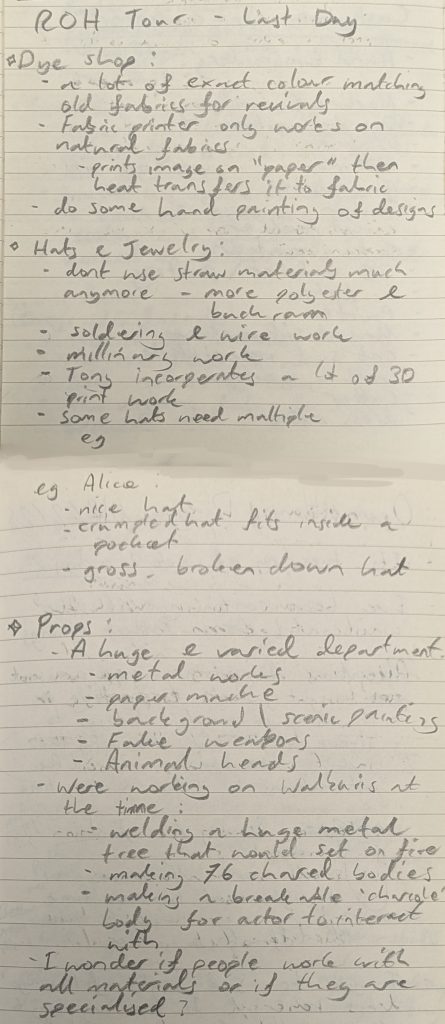 ROH Tour - Last Day
Dye shop:
- a lot of exact colour matching
old fabrics for revivals
- Fabric printer only works on
natural fabrics
- prints image on "paper" then
heat transfers it to fabric
- do some hand painting of designs
Hats & Jewelry:
- dont use straw materials much
anymore - more polyester &
buckram
- soldering & wire work
- millinary work
- Tony incorperates a lot of 3D
print work
- some hats need multiple
eg
eg Alice:
- nice hat
- crumpled hat fits inside a
pocket
- gross, broken down hat
Props:
- A huge & varied department.
- metal works
- paper mache
- background \ scenic painting
- Fake weapons
- Animal heads
- Were working on Walkuris at
the time:
- welding a huge metal
tree that would set on fire
- making 76 chared bodies
- making a breakable 'charcole'
body for actor to interact
with
- I wonder if people work with
all materials or if they are
specialised?